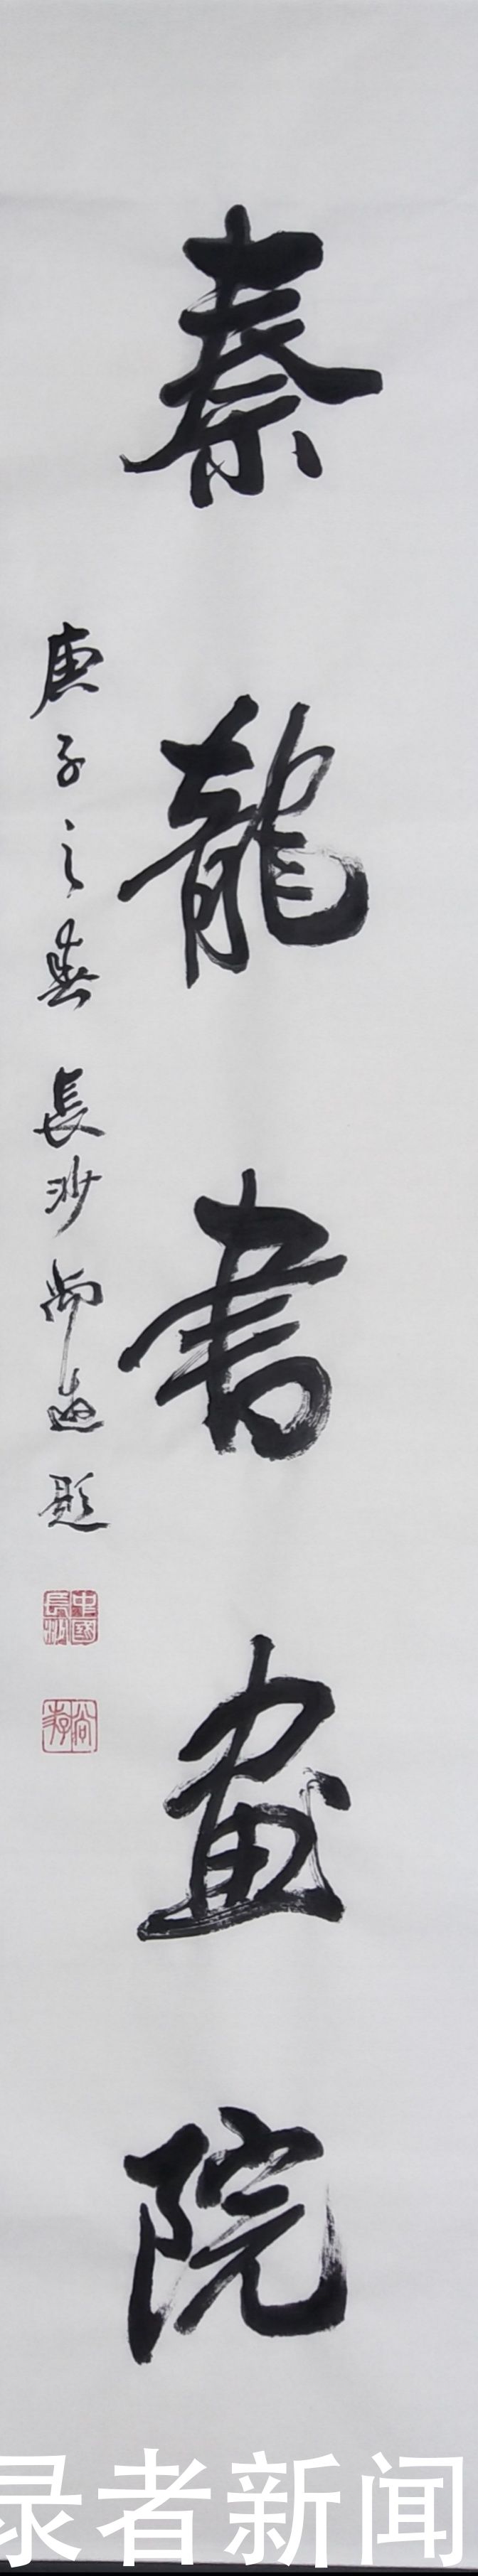 秦龍書畫院
庚子之春 長沙尚遊題
中國長沙
录者新闻